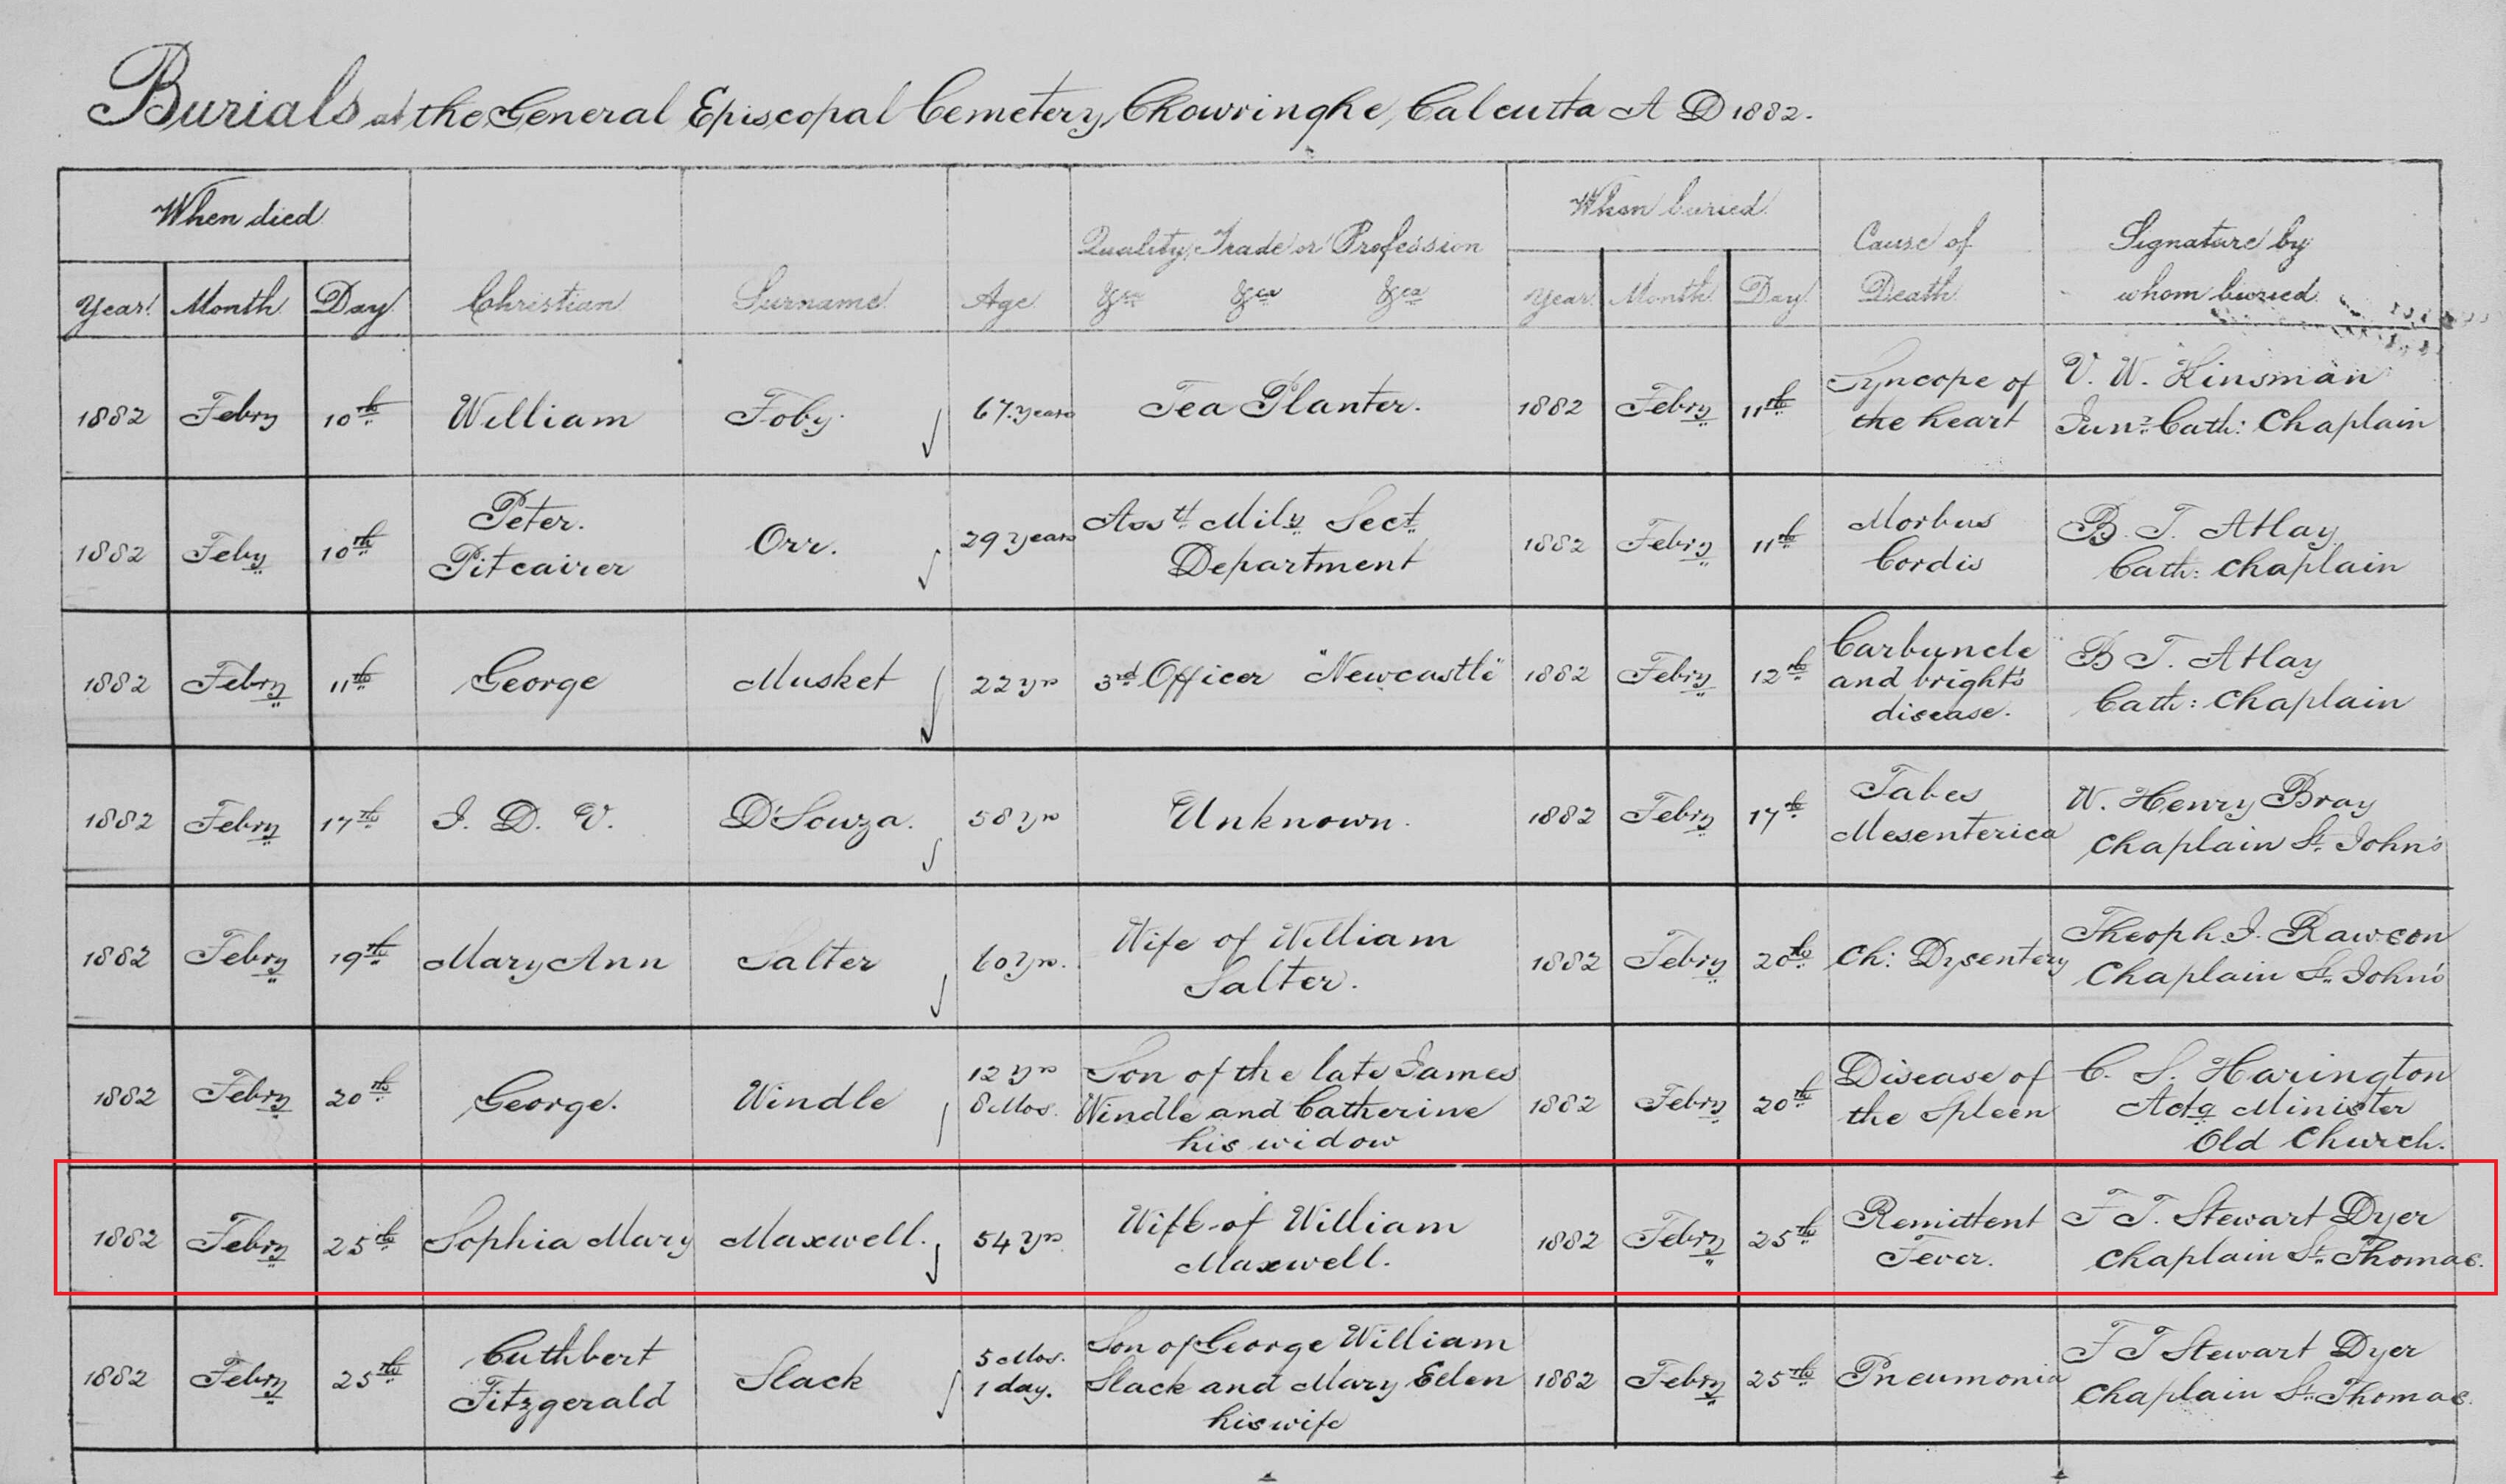 Burials at the General Episcopal Cemetery, Chowringhe, Calcutta A D 1882.
When died
Year Month Day
Christian
Surname
Age
Quality, Trade or Profession
&ca &ca &ca
When buried
Year Month Day
Cause of
Death
Signature by
whom buried
1882 Febry 10th William Foby. 67 years Tea Planter. 1882 Febry 11th
Syncope of
the heart
V. W. Kinsman
Junr. Cath: Chaplain
1882 Feby 10th
Peter.
Pitcairer
Orr. 29 years
Asstt Mily Sect
Department
1882 Febry 11th
Morbus
Cordis
B. T. Atlay
Cath: Chaplain
1882 Febry 11th George Musket 22 yrs 3rd Officer "Newcastle" 1882 Febry 12th
Carbuncle
and bright's
disease.
B T. Atlay
Cath: Chaplain
1882 Febry 17th J. D. V. D'Souza. 58 yrs Unknown. 1882 Febry 17th
Tabes
Mesenterica
W. Henry Bray
Chaplain St. John's
1882 Febry 19th Mary Ann Salter 60 yrs.
Wife of William
Salter.
1882 Febry 20th Ch: Dysentery
Theoph. J. Rawson
Chaplain St. John's
1882 Febry 20th George. Windle
12 yrs
8 Mos.
Son of the late James
Windle and Catherine
his widow
1882 Febry 20th
Disease of
the Spleen
C. S. Harington
Actg Minister
Old Church.
1882 Febry 25th Sophia Mary Maxwell. 54 yrs
Wife of William
Maxwell.
1882 Febry 25th
Remittent
Fever.
F T. Stewart Dyer
Chaplain St. Thomas.
1882 Febry 25th
Cuthbert
Fitzgerald
Slack
5 Mos.
1 day.
Son of George William
Slack and Mary Ellen
his wife
1882 Febry 25th Pneumonia
F T Stewart Dyer
Chaplain St. Thomas.